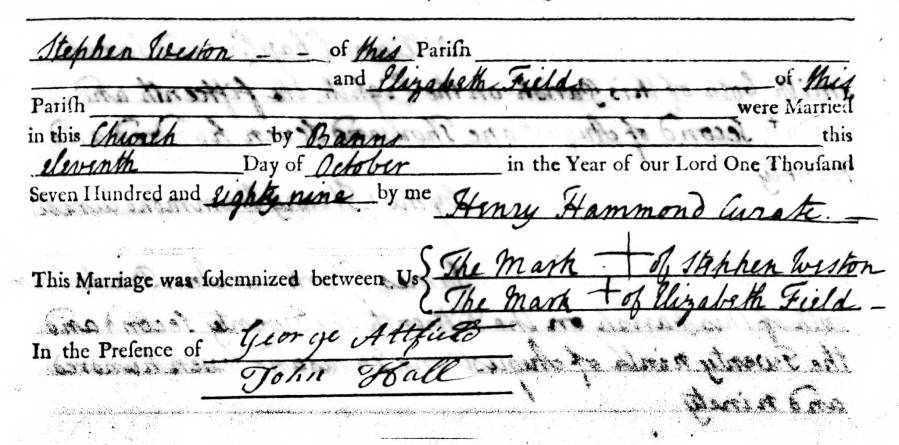 Stephen Weston - - of this Pariſh
and Elizabeth Fields of this
Pariſh were Married
in this Church by Banns this
eleventh Day of October in the Year of our Lord One Thouſand
Seven Hundred and eighty nine by me Henry Hammond Curate. -
This Marriage was ſolemnized between Us { The Mark + of Stephen Weston
The Mark + of Elizabeth Field -
In the Preſence of George Attfield
John Hall